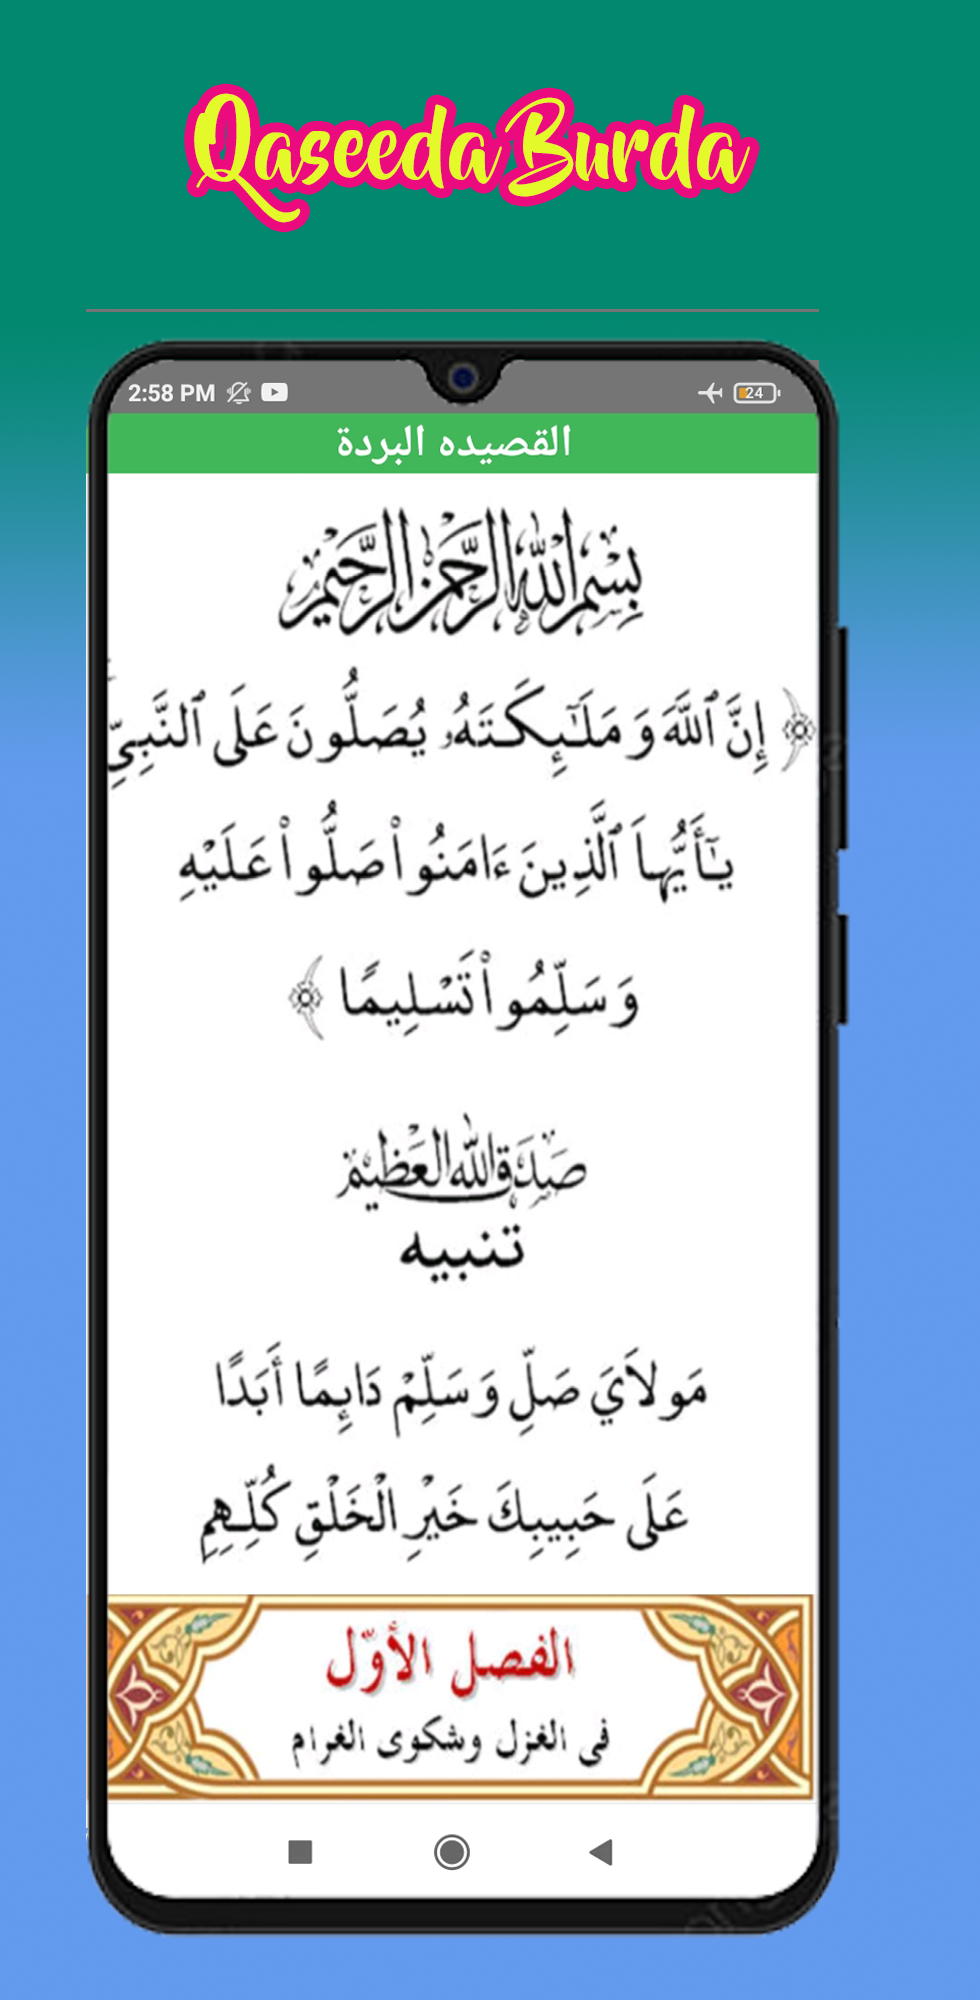 Qaseeda Burda
2:58 PM
24
القصيده البردة
بِسْمِ اللهِ الرَّحْمٰنِ الرَّحِيْمِ
﴿ إِنَّ ٱللَّهَ وَمَلَـٰٓئِكَتَهُۥ يُصَلُّونَ عَلَى ٱلنَّبِيِّ
يَـٰٓأَيُّهَا ٱلَّذِينَ ءَامَنُوا۟ صَلُّوا۟ عَلَيْهِ
وَسَلِّمُوا۟ تَسْلِيمًا ﴾
صَدَقَ اللهُ العَظِيمُ
تنبيه
مَولَايَ صَلِّ وَسَلِّمْ دَائِمًا أَبَدًا
عَلَى حَبِيبِكَ خَيْرِ الْخَلْقِ كُلِّهِمِ
الفصل الأوّل
في الغزل وشكوى الغرام